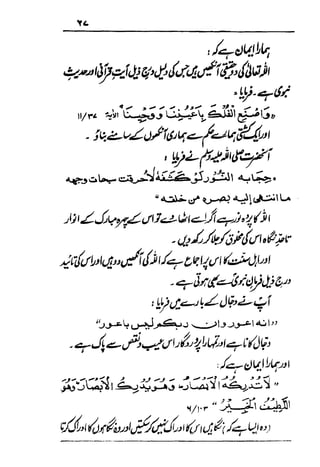 ۲۷
ہمارا ایمان ہے کہ:
اللہ تعالیٰ کی دو حقیقی آنکھیں ہیں جس کی دلیل درج ذیل آیت قرآنی اور حدیث
نبوی ہے۔ فرمایا:
"وَاصْنَعِ الْفُلْكَ بِأَعْيُنِنَا وَوَحْيِنَا" الآیۃ ۱۱/۳۷
اور ایک کشتی ہمارے حکم سے ہماری آنکھوں کے سامنے بناؤ۔
آنحضرت صلی اللہ علیہ وسلم نے فرمایا:
"حجابه النور لو كشفه لأحرقت سبحات وجهه
ما انتهى إليه بصره من خلقه"
اللہ کا پردہ نور ہے اگر اسے اٹھائے تو اس کے چہرہ مبارک کے انوار
تا حدِ نگاہ اس کی مخلوق کو جلا کر رکھ دیں۔
اور اہل سنت کا اس پر اجماع ہے کہ اللہ کی آنکھیں دو ہیں اور اس کی تائید
درج ذیل فرمان نبوی سے بھی ہوتی ہے۔
آپ نے دجال کے بارے میں فرمایا:
"انه اعور وان ربكم ليس باعور"
دجال کانا ہے اور تمہارا پروردگار اس عیب و نقص سے پاک ہے۔
اور ہمارا ایمان ہے کہ:
"لَا تُدْرِكُهُ الْأَبْصَارُ وَهُوَ يُدْرِكُ الْأَبْصَارَ وَهُوَ
اللَّطِيفُ الْخَبِيرُ" ۶/۱۰۳
(وہ ایسا ہے کہ) نگاہیں اس کا ادراک نہیں کر سکتیں اور وہ نگاہوں کا ادراک کرتا